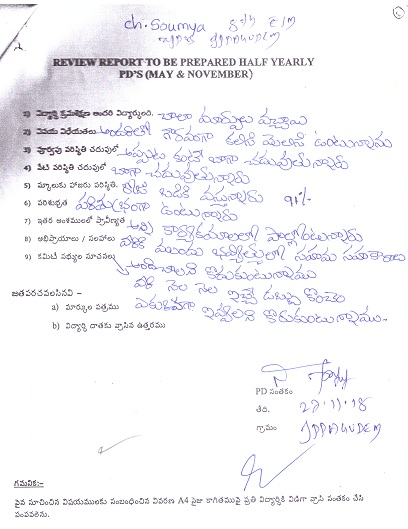 ch. Soumya 8th E/M
ZPHS IPPAGUDEM
REVIEW REPORT TO BE PREPARED HALF YEARLY
PD'S (MAY & NOVEMBER)
1) విద్యార్థి క్రమశిక్షణ అందరి విద్యార్థులది. చాలా మార్పులు వచ్చాయి
2) వినయ విధేయతలు అందరితో గౌరవంగా కలిసి మెలిసి ఉంటున్నాము
3) పూర్వపు పరిస్థితి చదువులో అప్పటి కంటే బాగా చదువుతున్నారు
4) నేటి పరిస్థితి చదువులో బాగా చదువుతున్నారు
5) స్కూలుకు హాజరు పరిస్థితి. రోజు బడికి వస్తున్నారు 91%
6) పరిశుభ్రత పరిశుభ్రంగా ఉంటున్నారు
7) ఇతర అంశములలో ప్రావీణ్యత అన్ని కార్యక్రమాలలో పాల్గొంటున్నారు
8) అభిప్రాయాలు / సలహాలు వీరికి ముందు భవిష్యత్తులో సహాయ సహకారాలు
9) కమిటీ సభ్యుల సూచనలు అందించాలని కోరుకుంటున్నాము
వీరికి నెల నెల ఇచ్చే డబ్బు కొంచెం
జతపరచవలసినవి – ఎక్కువగా ఇవ్వాలని కోరుకుంటున్నాము.
a) మార్కుల పత్రము
b) విద్యార్థి దాతకు వ్రాసిన ఉత్తరము
PD సంతకం
తేది. 27.11.18
గ్రామం IPPAGUDEM
గమనిక:-
పైన సూచించిన విషయములకు సంబంధించిన వివరణ A4 సైజు కాగితముపై ప్రతి విద్యార్థికి విడిగా వ్రాసి సంతకం చేసి
పంపవలెను.